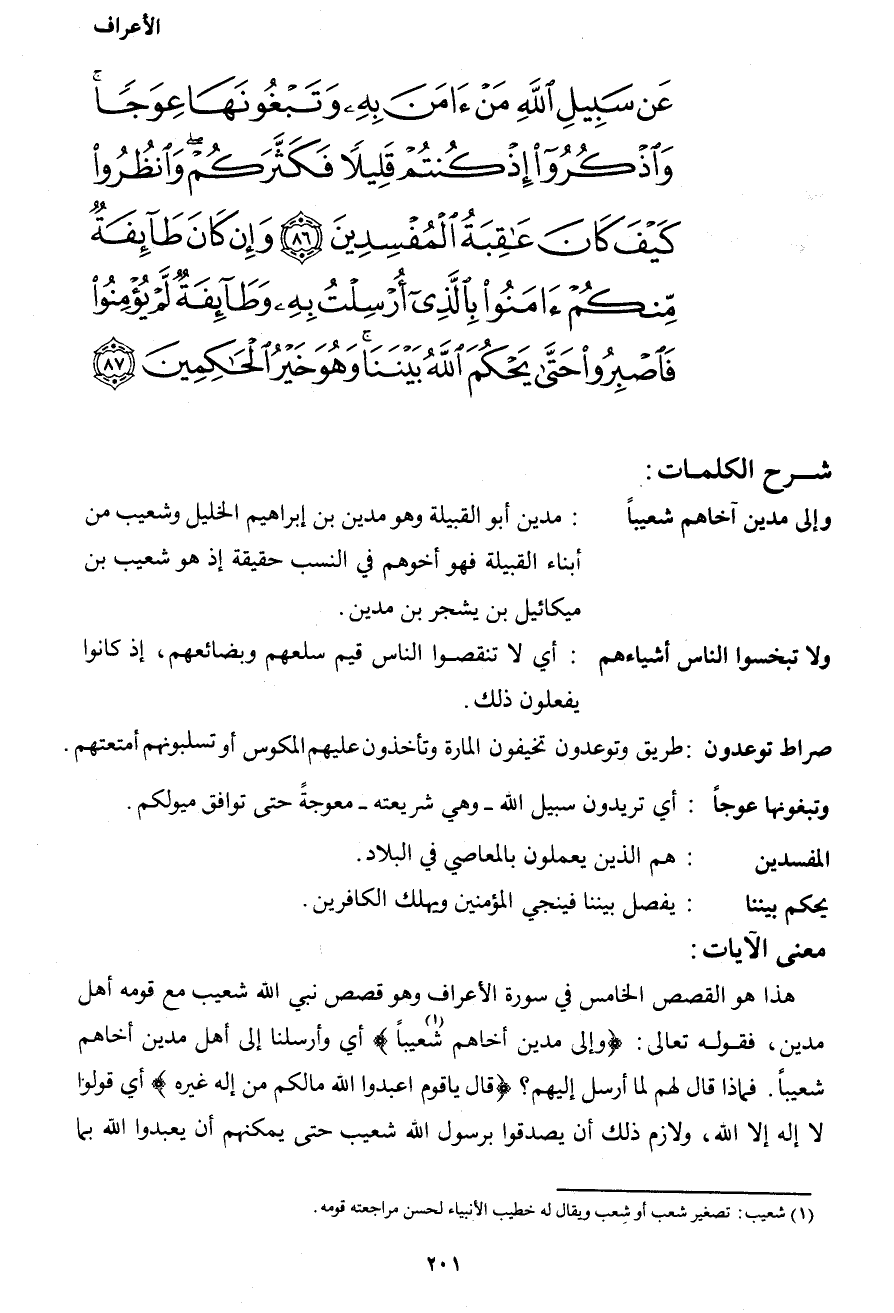 الأعراف
عَن سَبِيلِ ٱللَّهِ مَنْ ءَامَنَ بِهِۦ وَتَبْغُونَهَا عِوَجًا ۚ
وَٱذْكُرُوٓا۟ إِذْ كُنتُمْ قَلِيلًا فَكَثَّرَكُمْ ۖ وَٱنظُرُوا۟
كَيْفَ كَانَ عَٰقِبَةُ ٱلْمُفْسِدِينَ ٨٦ وَإِن كَانَ طَآئِفَةٌ
مِّنكُمْ ءَامَنُوا۟ بِٱلَّذِىٓ أُرْسِلْتُ بِهِۦ وَطَآئِفَةٌ لَّمْ يُؤْمِنُوا۟
فَٱصْبِرُوا۟ حَتَّىٰ يَحْكُمَ ٱللَّهُ بَيْنَنَا ۚ وَهُوَ خَيْرُ ٱلْحَٰكِمِينَ ٨٧
شرح الكلمات :
وإلى مدين آخاهم شعيباً : مدين أبو القبيلة وهو مدين بن إبراهيم الخليل وشعيب من
أبناء القبيلة فهو أخوهم في النسب حقيقة إذ هو شعيب بن
ميكائيل بن يشجر بن مدين .
ولا تبخسوا الناس أشياءهم : أي لا تنقصوا الناس قيم سلعهم وبضائعهم ، إذ كانوا
يفعلون ذلك .
صراط توعدون : طريق وتوعدون تخيفون المارة وتأخذون عليهم المكوس أو تسلبونهم أمتعتهم .
وتبغونها عوجاً : أي تريدون سبيل الله ـ وهي شريعته ـ معوجةً حتى توافق ميولكم .
المفسدين : هم الذين يعملون بالمعاصي في البلاد .
يحكم بيننا : يفصل بيننا فينجي المؤمنين ويهلك الكافرين .
معنى الآيات :
هذا هو القصص الخامس في سورة الأعراف وهو قصص نبي الله شعيب مع قومه أهل
مدين ، فقوله تعالى : ﴿وإلى مدين أخاهم شعيباً (١)﴾ أي وأرسلنا إلى أهل مدين أخاهم
شعيباً . فماذا قال لهم لما أرسل إليهم؟ ﴿قال ياقوم اعبدوا الله مالكم من إله غيره﴾ أي قولوا
لا إله إلا الله ، ولازم ذلك أن يصدقوا برسول الله شعيب حتى يمكنهم أن يعبدوا الله بما
(١) شعيب : تصغير شعب أو شِعب ويقال له خطيب الأنبياء لحسن مراجعته قومه .
٢٠١